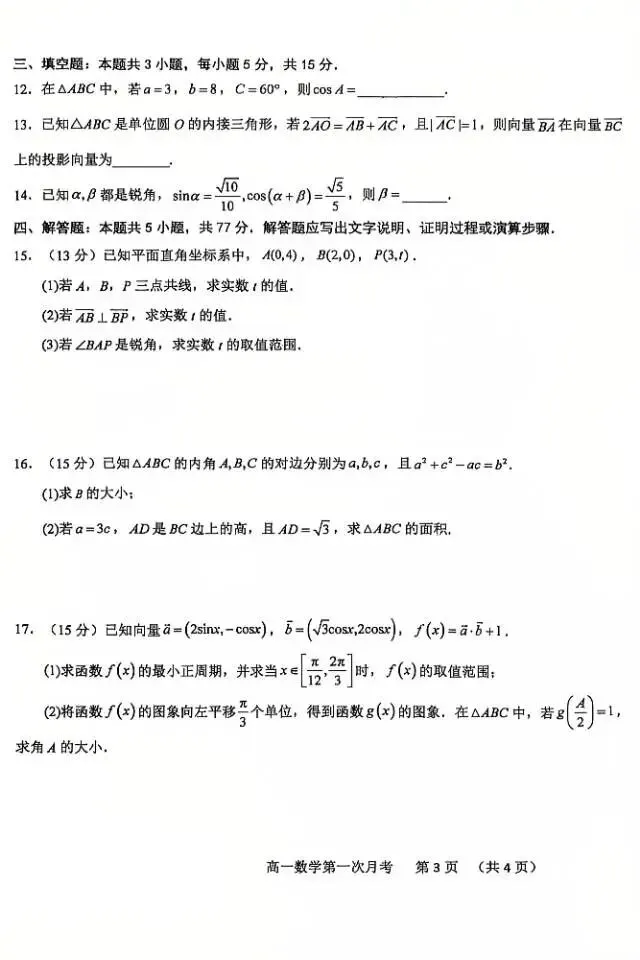 三、填空题：本题共 3 小题，每小题 5 分，共 15 分．
12．在△ABC 中，若 a=3，b=8，C=60°，则 cos A=__________．
13．已知△ABC 是单位圆 O 的内接三角形，若 2\overrightarrow{AO}=\overrightarrow{AB}+\overrightarrow{AC}，且|\overrightarrow{AC}|=1，则向量 \overrightarrow{BA} 在向量 \overrightarrow{BC}
上的投影向量为_______．
14．已知 α,β 都是锐角，sinα=\frac{\sqrt{10}}{10},cos(α+β)=\frac{\sqrt{5}}{5}，则 β=_____．
四、解答题：本题共 5 小题，共 77 分．解答题应写出文字说明、证明过程或演算步骤．
15．（13 分）已知平面直角坐标系中，A(0,4)，B(2,0)，P(3,t)．
(1)若 A，B，P 三点共线，求实数 t 的值．
(2)若 \overline{AB}⊥\overline{BP}，求实数 t 的值．
(3)若 ∠BAP 是锐角，求实数 t 的取值范围．
16．（15 分）已知△ABC 的内角 A,B,C 的对边分别为 a,b,c，且 a²+c²−ac=b²．
(1)求 B 的大小；
(2)若 a=3c，AD 是 BC 边上的高，且 AD=√3，求△ABC 的面积．
17．（15 分）已知向量 \vec{a}=(2sinx,−cosx)，\vec{b}=(√3cosx,2cosx)，f(x)=\vec{a}·\vec{b}+1．
(1)求函数 f(x) 的最小正周期，并求当 x∈[\frac{π}{12},\frac{2π}{3}] 时，f(x) 的取值范围；
(2)将函数 f(x) 的图象向左平移 \frac{π}{3} 个单位，得到函数 g(x) 的图象．在△ABC 中，若 g(\frac{A}{2})=1，
求角 A 的大小．
高一数学第一次月考 第 3 页 （共 4 页）